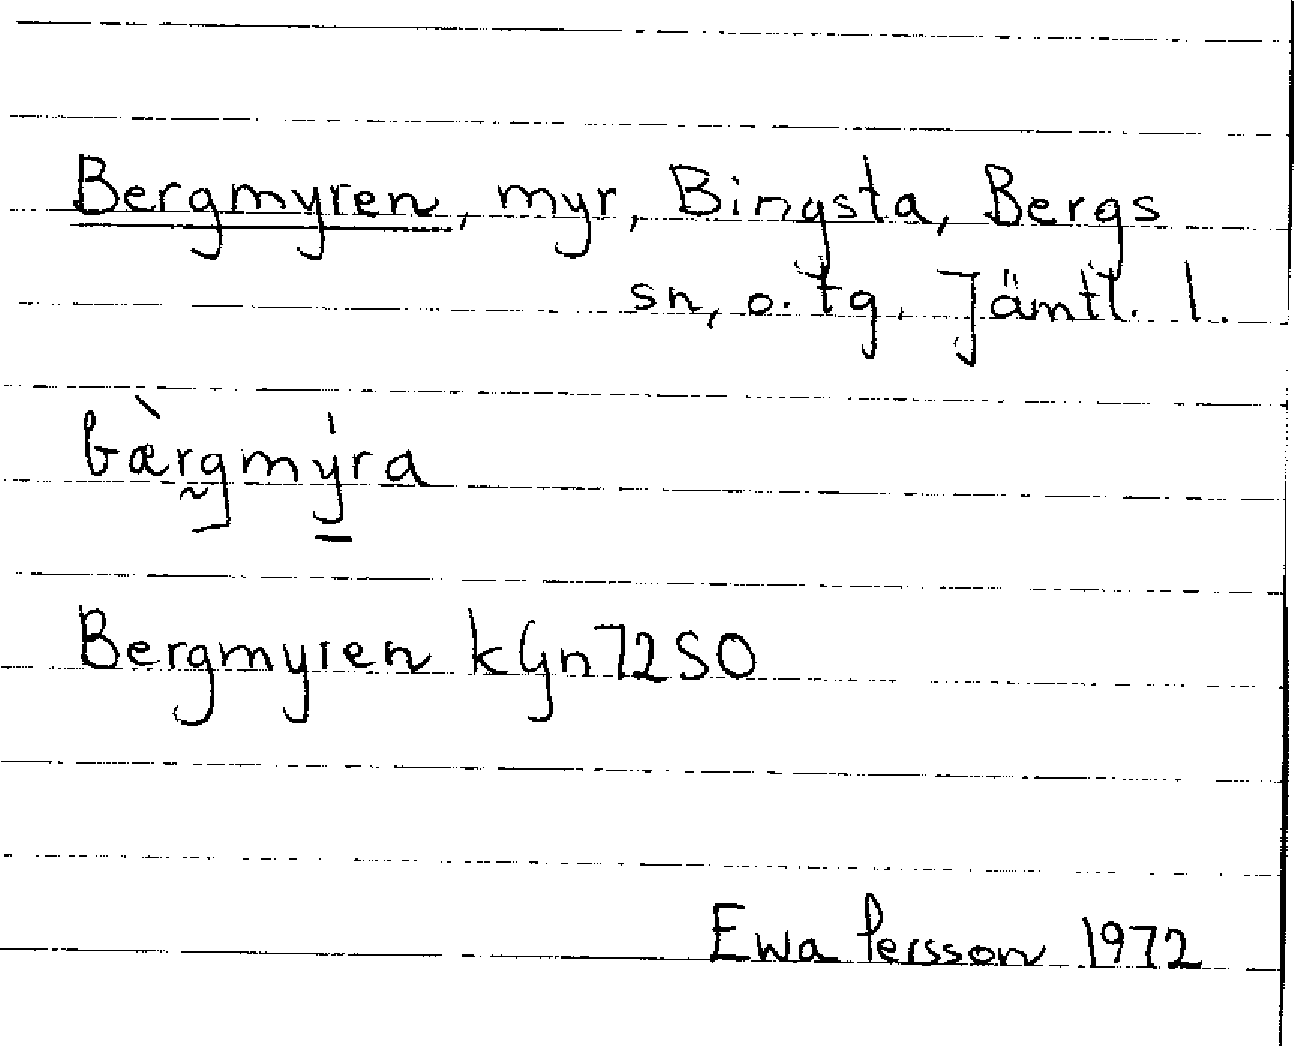 Bergmyren, myr, Bingsta, Bergs
sn, o. tg. Jämtl. l.
bæ̀rgmýra
Bergmyren kGn72SO
Ewa Persson 1972